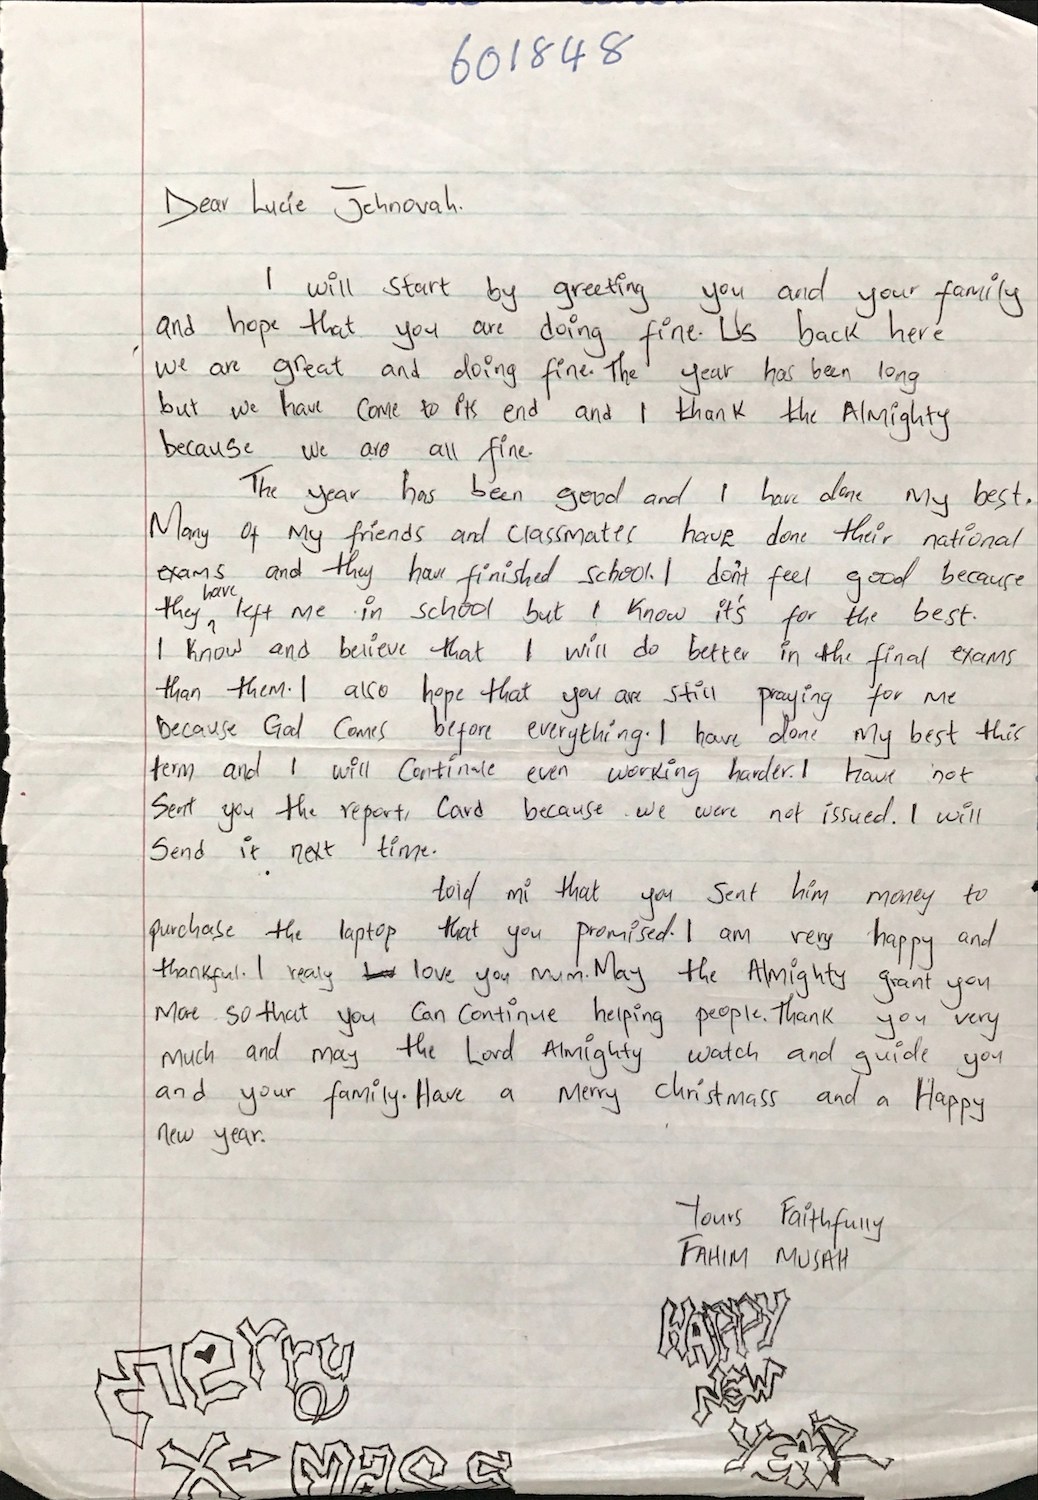 601848
Dear Lucie Jehnovah.
I will start by greeting you and your family
and hope that you are doing fine. Us back here
we are great and doing fine. The year has been long
but we have come to its end and I thank the Almighty
because we are all fine.
The year has been good and I have done my best.
Many of my friends and classmates have done their national
exams and they have finished school. I don't feel good because
they have left me in school but I know it's for the best.
I know and believe that I will do better in the final exams
than them. I also hope that you are still praying for me
because God comes before everything. I have done my best this
term and I will continue even working harder. I have not
sent you the report, card because we were not issued. I will
send it next time.
told mi that you sent him money to
purchase the laptop that you promised. I am very happy and
thankful. I realy love you mum. May the Almighty grant you
more so that you can continue helping people. Thank you very
much and may the Lord Almighty watch and guide you
and your family. Have a merry christmass and a Happy
new year.
Yours Faithfully
FAHIM MUSAH
HAPPY
NEW
YEAR
Merry
X-Mass